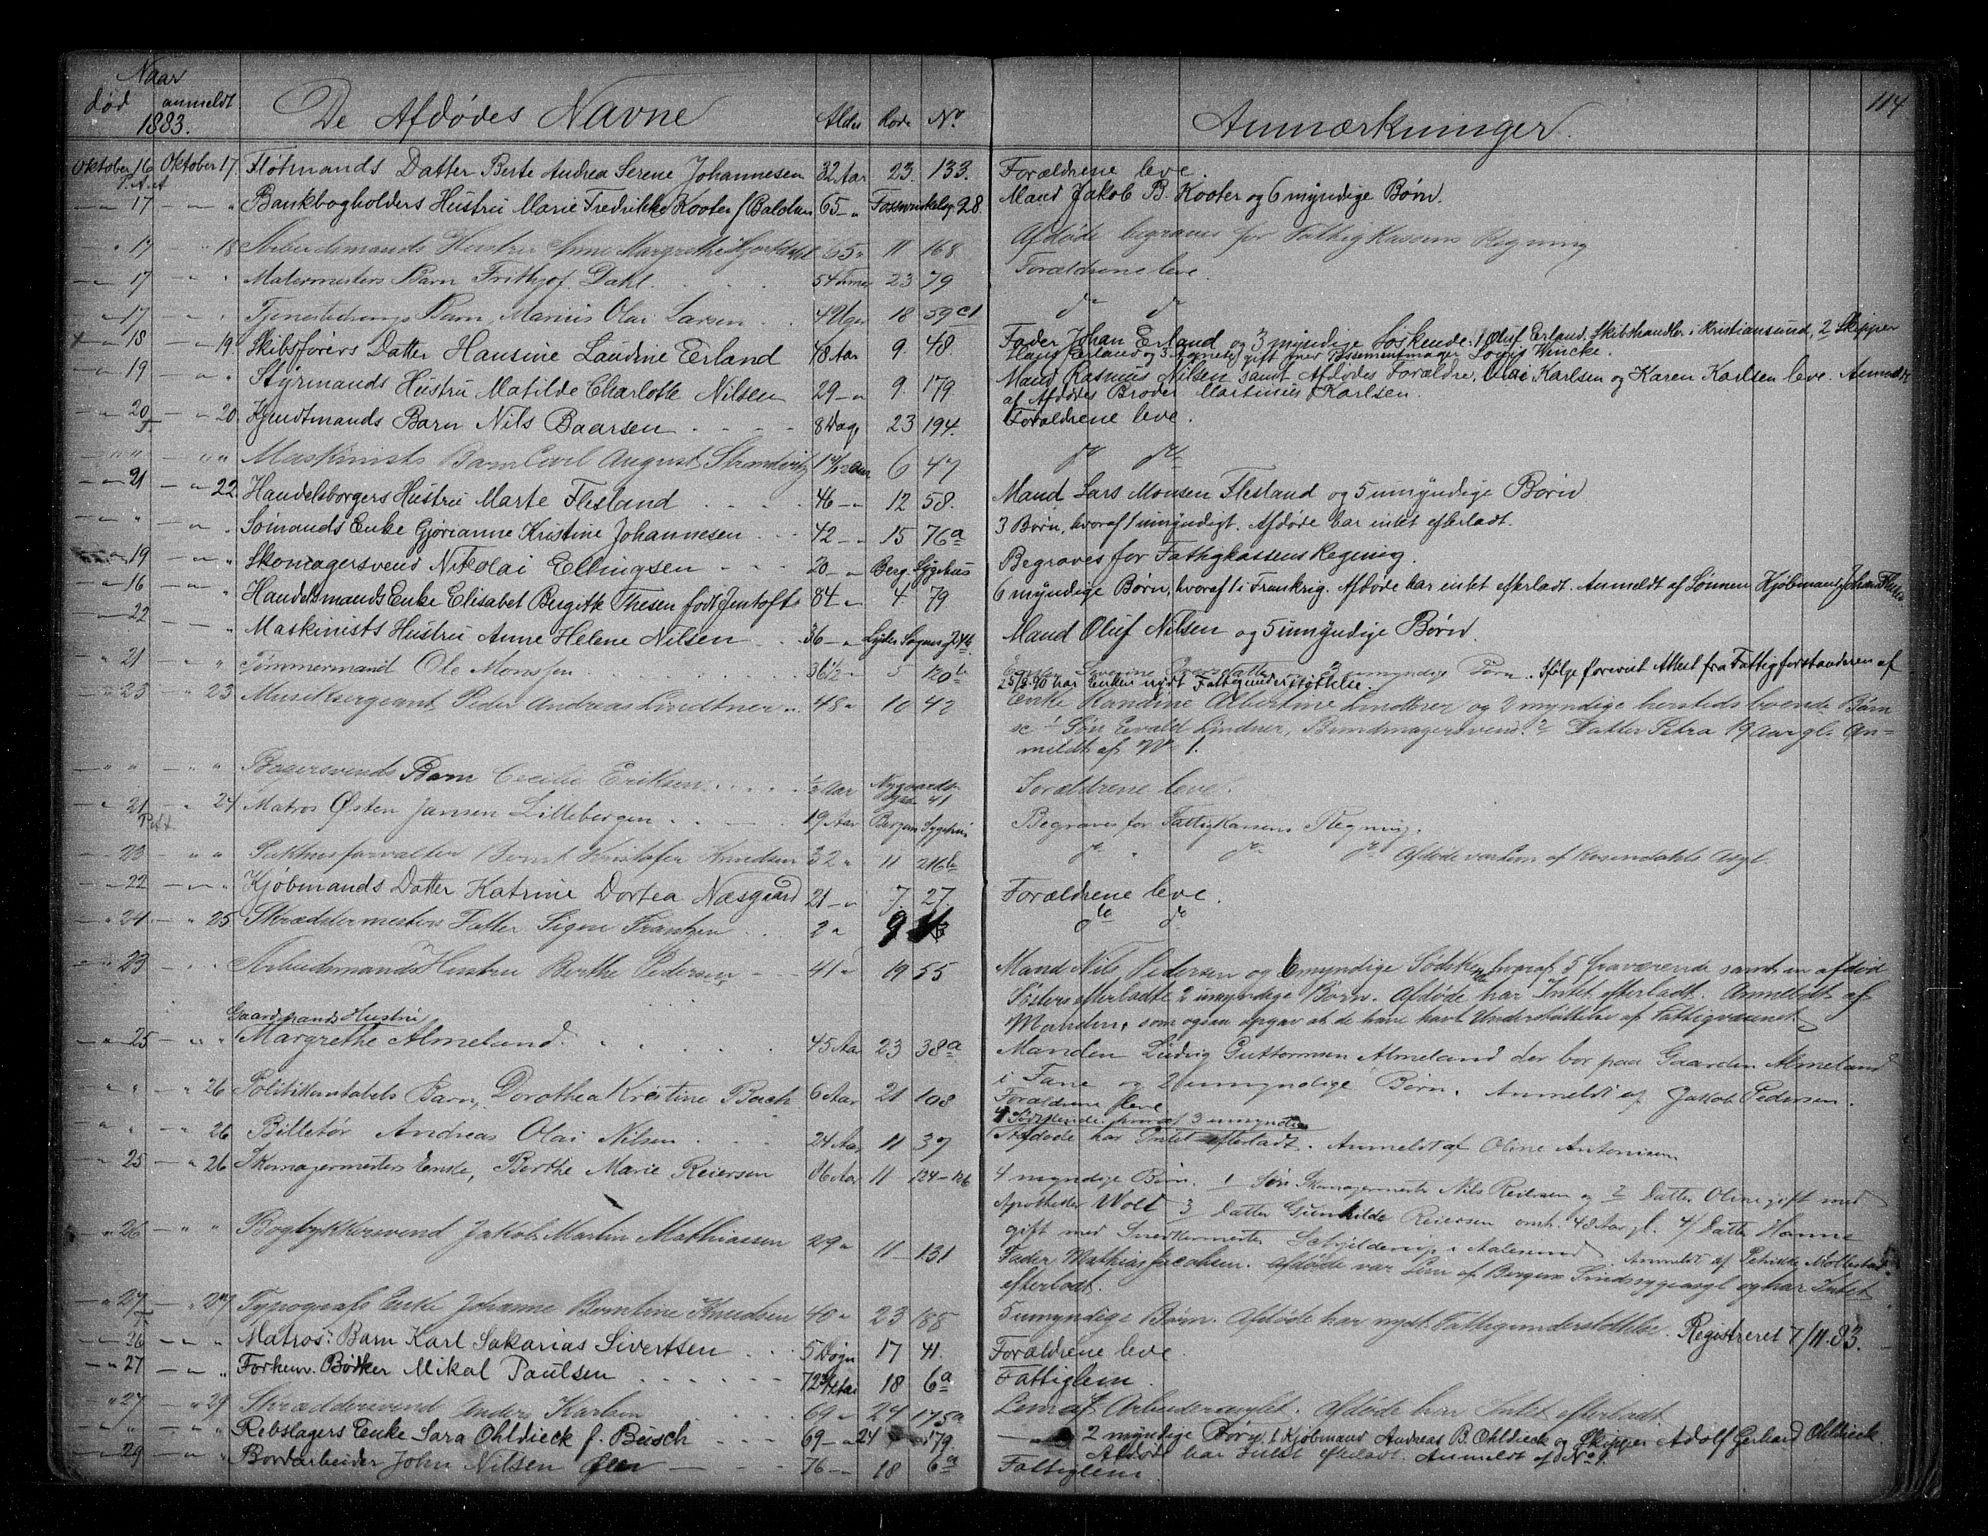 Naar
død anmeldt De Afdødes Navne Alder Rode No. Anmærkninger. 114
1883.
Oktober 16 Oktober 17 Flotmands Datter Berte Andrea Serene Johannesen 32 Aar 23 133. Forældrene leve.
" 17 " " Bankbogholders Hustru Marie Fredrikke Kooter f. Balchen 65 " Fosswinkelsg. 28. Mand Jakob B. Kooter og 6 myndige Børn.
" 17 " 18 Arbeidsmands Hustru Anne Margrethe 65 " 11 168 Afdøde begraves for Fattigkassens Regning
" 17 " " Malermesters Barn Frithjof Dahl 54 Timer 23 79 Forældrene leve.
" 17 " " Barn, Marius Olai Larsen 4 Uger 18 59 c1 do do
" 18 " 19 Skibsførers Datter Hansine Laudine Erland 48 Aar 9 48 Fader Johan Erland og 3 myndige Søskende: 1 Oluf Erland, Skibshandler i Kristiansund, 2 Skipper
Hans Erland og 3 gift med Possementmager Louis Wincke.
" 19 " " Styrmands Hustru Matilde Charlotte Nilsen 29 " 9 179 Mand Rasmus Nilsen samt Afdødes Forældre, Olai Karlsen og Karen Karlsen leve. Anmeldt
af Afdødes Broder Martinus Karlsen.
" 20 " 20 Barn Nils Baarsen 8 Dage 23 194. Forældrene leve.
" " " " Maskinists Barn August 6 47 do do
" 21 " 22 Handelsborgers Hustru Marte Flesland 46 " 12 58. Mand Lars Monsen Flesland og 5 umyndige Børn.
" " " " Sømands Enke Gjørianne Kristine Johannesen 42 " 15 76a 3 Børn, hvoraf 1 umyndigt. Afdøde har intet efterladt.
" 19 " " Skomagersvend Nikolai Ellingsen 20 " Berg. Sygehus Begraves for Fattigkassens Regning.
" 16 " " Handelsmands Enke Elisabet Bergitte Thesen født Jentoft 84 " 4 79 6 myndige Børn, hvoraf 1 i Frankrig. Afdøde har intet efterladt. Anmeldt af Sønnen Kjøbmand Johan Thesen
" 22 " " Maskinists Hustru Anne Helene Nilsen 36 " Mand Oluf Nilsen og 5 umyndige Børn.
" 21 " " Tømmermand Ole Monssen 36 1/2 " 5 120b Børn. Ifølge forevist Attest fra Fattigforstanderen af
har Enken nydt Fattigunderstøttelse.
" 23 " 23 Musiksergeant Peder Andreas Lindtner 48 " 10 42 Enke Randine Albertine Lindtner og 2 myndige herstedsboende Børn
1 Søn Evald Lindner, Bundtmagersvend. 2 Datter Petra 19 Aar gl. An-
meldt af No 1.
" " " " Bagersvends Barn Cecilie Eriksen 1/2 Aar Nygaards- 41 Forældrene leve.
" 21 " 24 Matros Østen Jansen Lillebergen 19 Aar Bergens Sygehus Begraves for Fattigkassens Regning.
" 23 " " Pakhusforvalter Bernt Kristofer Knudsen 32 " 11 216b do do do Afdøde var Lem af Rosendahls Asyl.
" 22 " " Kjøbmands Datter Katrine Dortea Næsgaard 21 " 7 27 Forældrene leve.
" 24 " 25 Skræddermesters Datter Signe Frantzen 2 " 9 do do
" 23 " " Arbeidsmands Hustru Berthe Pedersen 41 " 19 55 Mand Nils Pedersen og 6 myndige Sødskende, hvoraf 5 fraværende samt en afdød
Søsters efterladte 2 umyndige Børn. Afdøde har Intet efterladt. Anmeldt af
Manden, som ogsaa opgav at de have havt Understøttelse af Fattigvæsenet.
Gaardmands Hustru
" 25 " " Margrethe Almeland 45 Aar 23 38a Manden Ludvig Guttormsen Almeland der bor paa Gaarden Almeland
i Fane og 2 umyndige Børn. Anmeldt af Jakob Pedersen.
" " " 26 Politikonstabels Barn, Dorothea Kristine Busch 6 Aar 21 108 Forældrene leve
4 Sødskende hvoraf 3 umyndige
" " " 26 Billetør Andreas Olai Nilsen 24 Aar 11 37 Afdøde har Intet efterladt. Anmeldt af Oline Antonisen
" 25 " 26 Skomagermesters Enke, Berthe Marie Reiersen 86 Aar 11 124-126 4 myndige Børn. 1 Søn Skomagermester Nils Reiersen og 2 Datter Oline gift med
Apotheker Wolt 3 Datter Gunhilde Reiersen omtr. 48 Aar gl. 4/ Datter Hanne
gift med Snedkermester i Aalesund. Anmeldt af
" 26 " " Bogtrykkersvend Jakob Martin Mathiassen 29 " 11 131 Fader Mathias Jacobsen. Afdøde var Lem af Bergens Sindssygeasyl og har Intet
efterladt.
" 27 " 27 Typografs Enke Johanne Berntine Knudsen 40 " 23 188 5 umyndige Børn. Afdøde har nydt Fattigunderstøttelse. Registreret 7/11.83.
" 26 " " Matros' Barn Karl Sakarias Sivertsen 5 Døgn 17 41. Forældrene leve.
" 27 " " Forhenv. Bødker Mikal Paulsen 18 6a Fattiglem.
" 27 " 29 Skræddersvend Anders Karlsen 69 " 24 175a Lem af Arbeideasylet. Afdøde har Intet efterladt.
" " " " Rebslagers Enke Sara Ohldieck f. Busch 69 " 24 179. 2 myndige Børn, 1 Kjøbmand Andreas B. Ohldieck og Skipper Adolf Gerhard Ohldieck
Afdøde har Intet efterladt. Anmeldt af No 1.
" 29 " " Bordarbeider John Nilsen 76 " 18 6a Fattiglem.